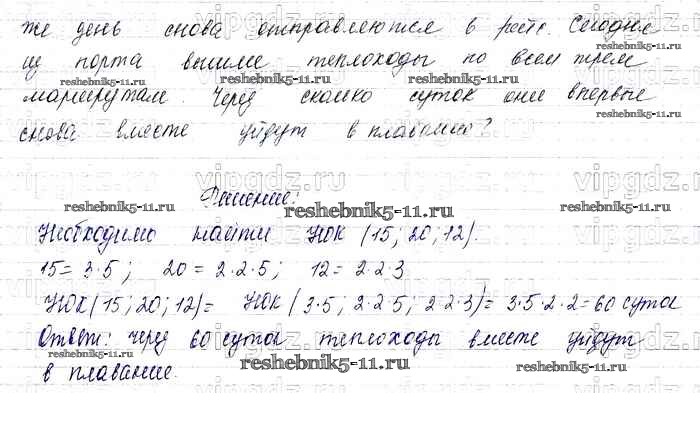 же день снова отправляются в рейс. Сегодня
из порта вышли теплоходы по всем трем
reshebnik5-11.ru reshebnik5-11.ru reshebnik5-11.ru
маршрутам. Через сколько суток они впервые
reshebnik5-11.ru
снова вместе уйдут в плавание?
Решение:
reshebnik5-11.ru reshebnik5-11.ru reshebnik5-11.ru
Необходимо найти НОК (15; 20; 12).
15 = 3·5; 20 = 2·2·5; 12 = 2·2·3
НОК (15; 20; 12) = НОК (3·5; 2·2·5; 2·2·3) = 3·5·2·2 = 60 суток
Ответ: через 60 суток теплоходы вместе уйдут
reshebnik5-11.ru reshebnik5-11.ru
в плавание.
reshebnik5-11.ru
vipgdz.ru